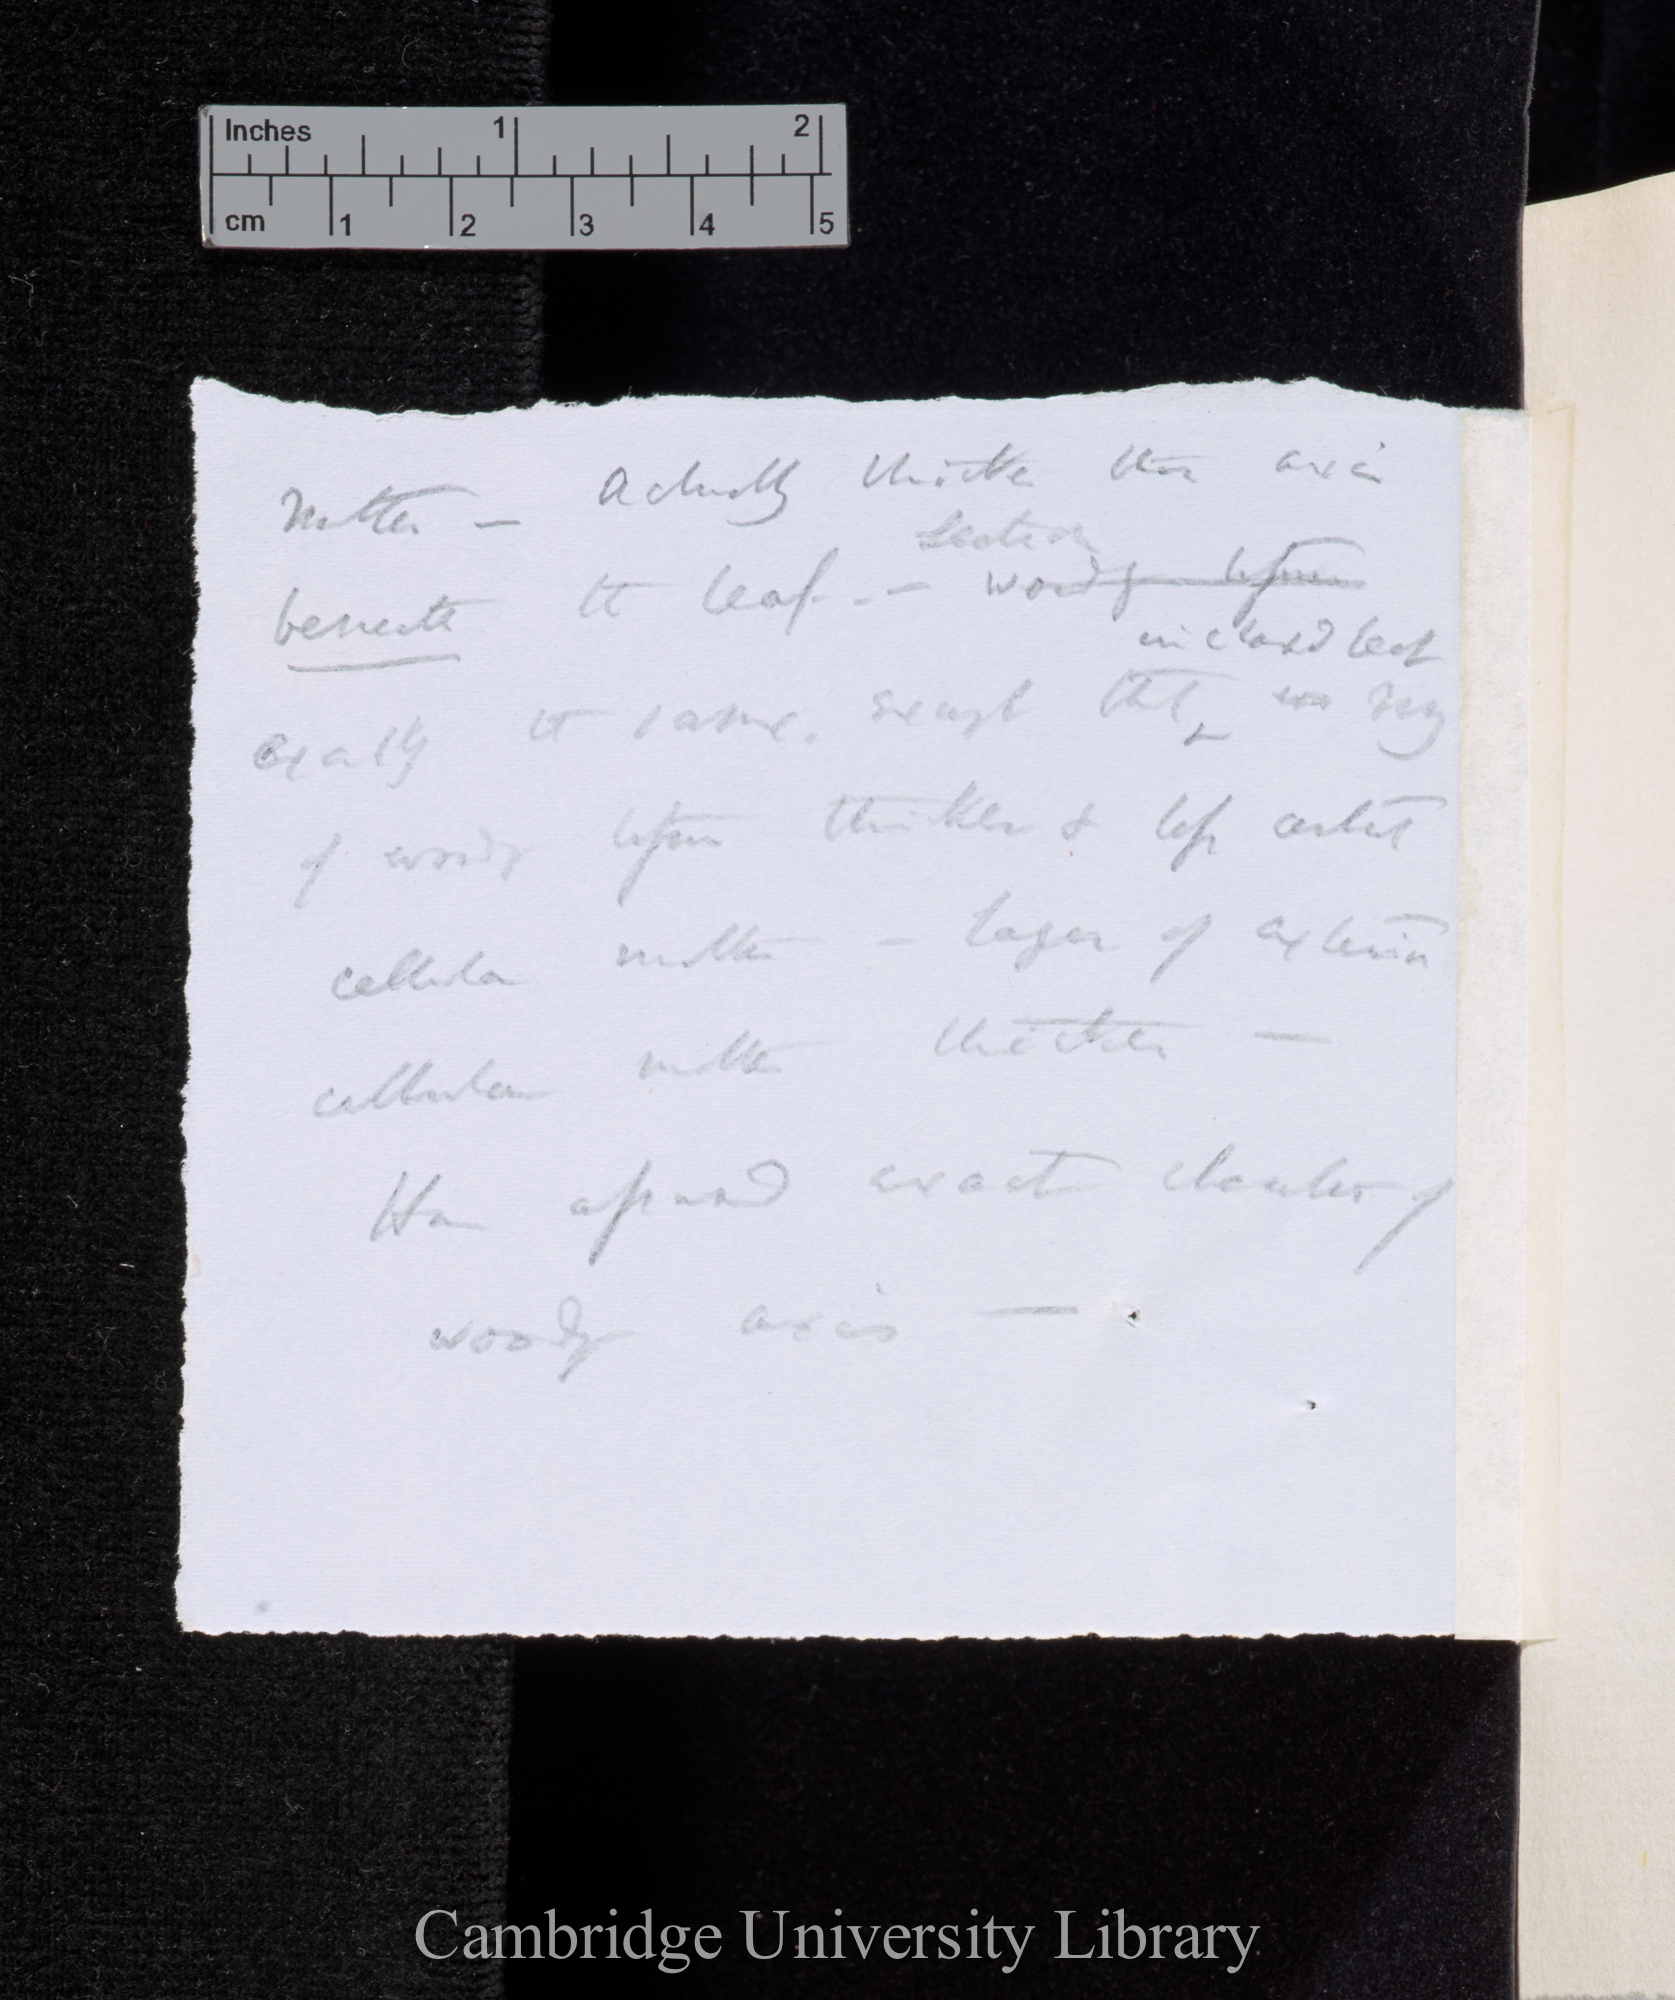 Inches 1 2
cm 1 2 3 4 5
matter — Actually thicker than axis
section
beneath the leaf. — woody
in clasped leaf
exactly the same. except that ring
of woody thicker & less central
cellular matter — layer of exterior
cellular matter thicker —
Has assumed exact character of
woody axis —
Cambridge University Library